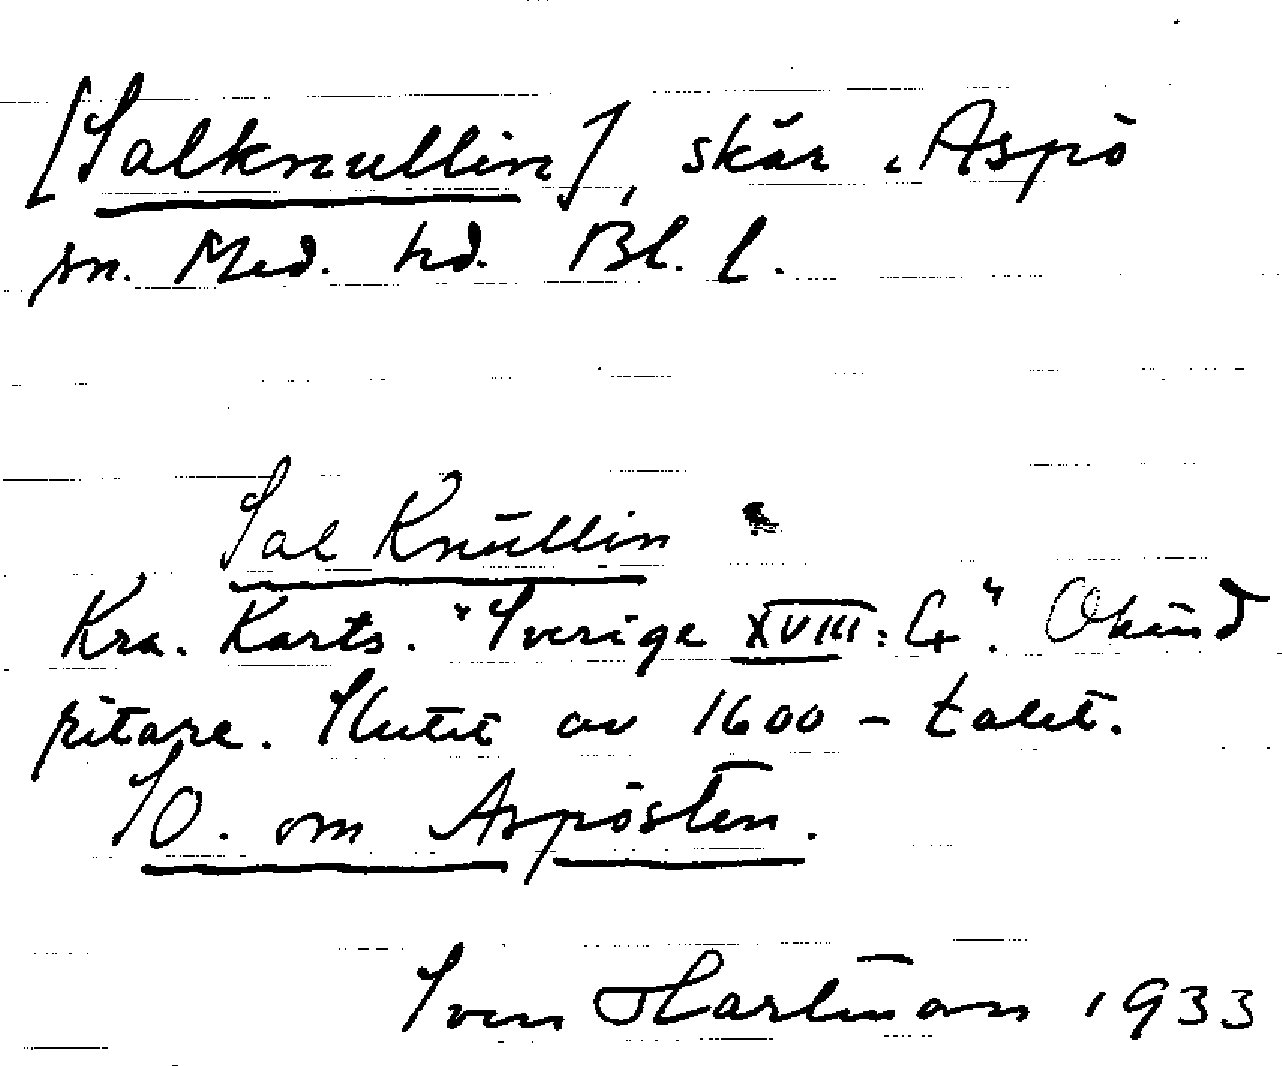 [Salknullin], skär i Aspö
sn. Med. hd. Bl. l.
Sal Knullin
Kra. Karts. "Sverige XVIII: 4". Okänd
ritare. Slutet av 1600-talet.
SO. om Aspösten.
Sven Hartman 1933